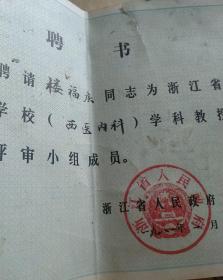 聘书
聘请楼福庆同志为浙江省
学校（西医内科）学科教授
评审小组成员。
浙江省人民政府
一九八一年 月
浙江省人民政府